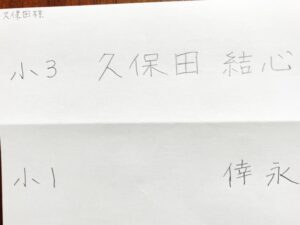 久保田
小3 久保田 結心
小1 倖永